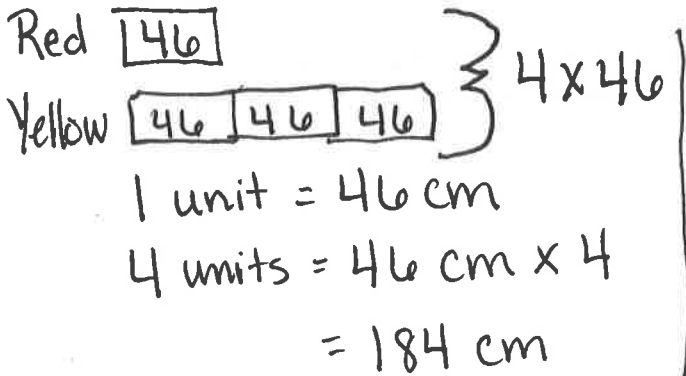 Red 46
Yellow 46 46 46 } 4 x 46
1 unit = 46 cm
4 units = 46 cm x 4
= 184 cm